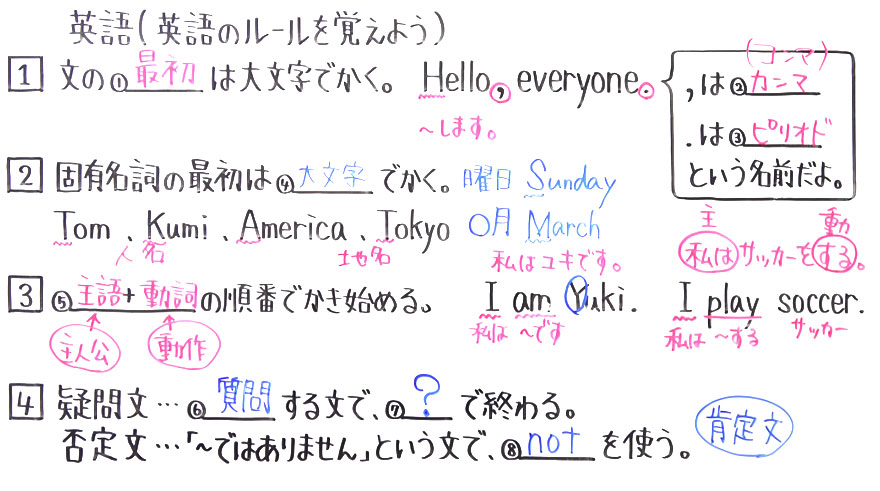 英語(英語のルールを覚えよう)
1 文の①最初は大文字でかく。 Hello, everyone.
～します。
(コンマ)
,は②カンマ
.は③ピリオド
という名前だよ。
2 固有名詞の最初は④大文字でかく。 曜日 Sunday
Tom、Kumi、America、Tokyo 〇月 March
人名 土地名
3 ⑤主語+動詞の順番でかき始める。
主人公 動作
私はユキです。
I am Yuki.
私は ～です
主 動
私はサッカーをする。
I play soccer.
私は ～する サッカー
4 疑問文…⑥質問する文で、⑦?で終わる。
否定文…「～ではありません」という文で、⑧notを使う。
肯定文